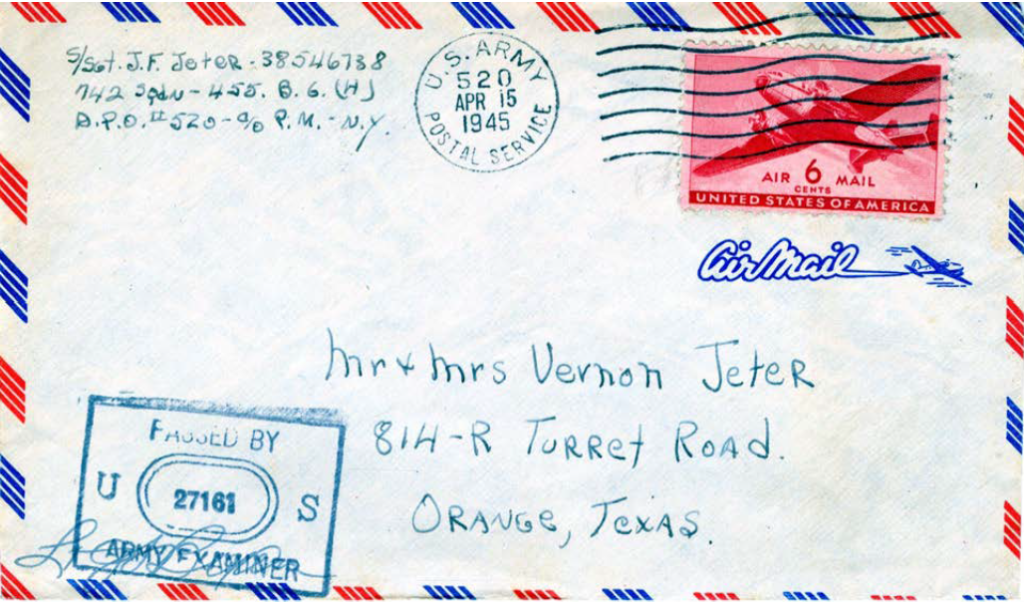 S/Sgt. J.F. Jeter - 38546738
742 Sqdn - 455. B. G. (H)
A.P.O. #520 - c/o P.M. - N.Y.
U.S. ARMY
520
APR 15
1945
POSTAL SERVICE
AIR 6 MAIL
CENTS
UNITED STATES OF AMERICA
Air Mail
Mr & Mrs Vernon Jeter
814-R Turret Road.
Orange, Texas.
PASSED BY
U 27161 S
ARMY EXAMINER